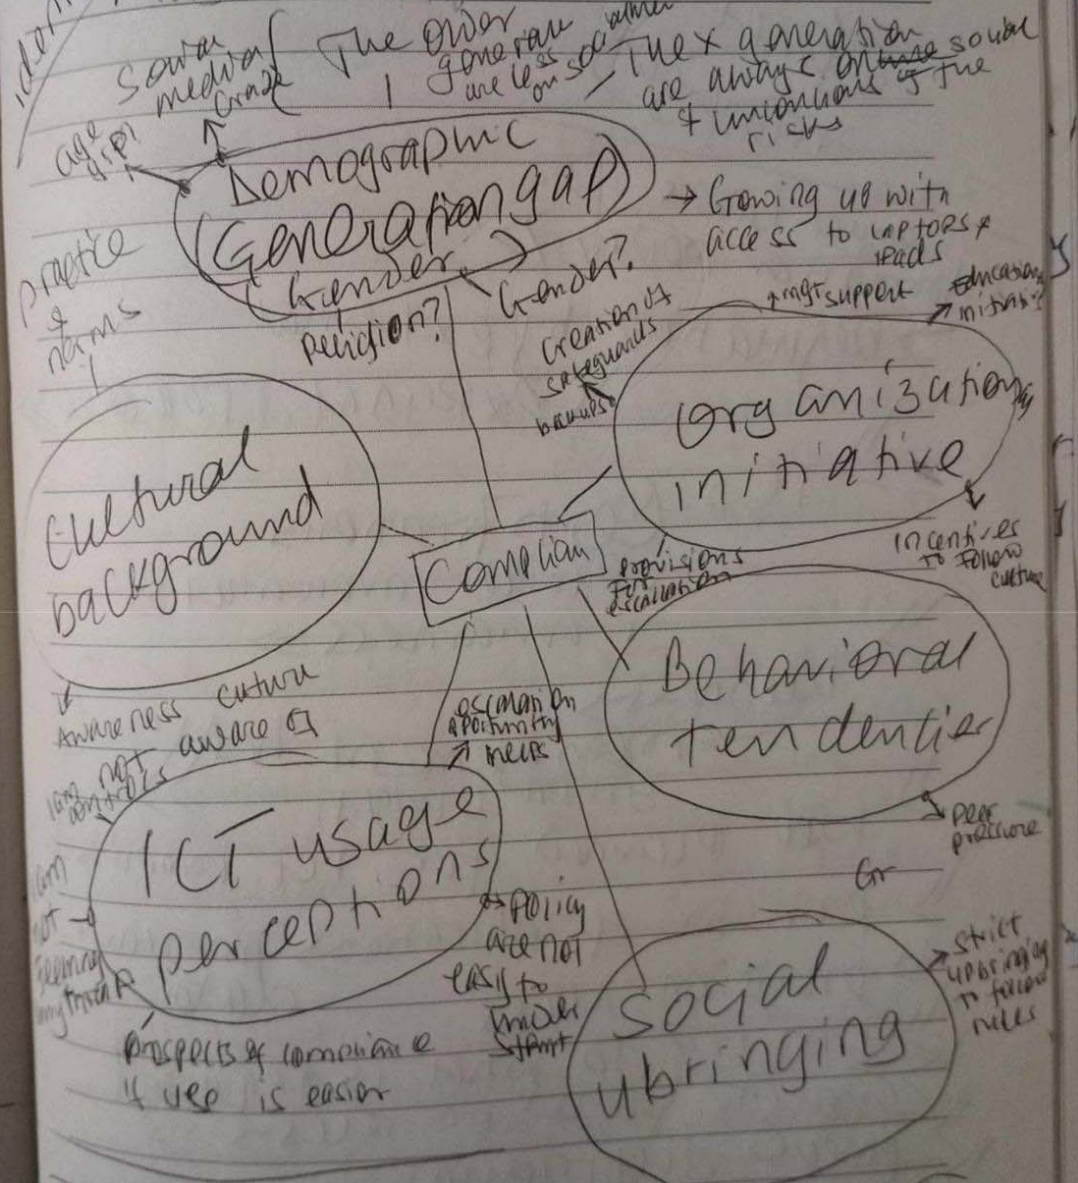 iden
social
media
craze
The older
generation
are less
on social
The x generation
are always online social
& unconscious of the
risks
age
Demographic
(Generation gap)
(Gender
→ Growing up with
access to laptops &
ipads
Gender?
religion?
practice
&
norms
Creation of
safeguards
backups
mgt support
education
Organizational
initiative
incentives
to follow
culture
Cultural
background
Complian
provisions
for
escalation
Behavioral
tendencies
peer
pressure
Awareness culture
not aware of
escalation
opportunity
helps
ICT usage
perceptions
policy
are not
easy to
under
stant
prospects of compliance
if use is easier
Gr
Social
ubringing
strict
upbringing
to follow
rules